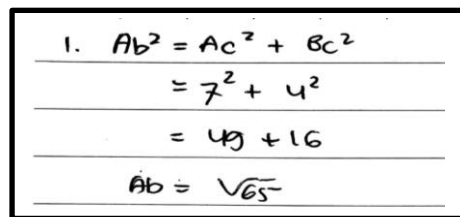 1. Ab² = Ac² + Bc²
= 7² + 4²
= 49 + 16
Ab = √65